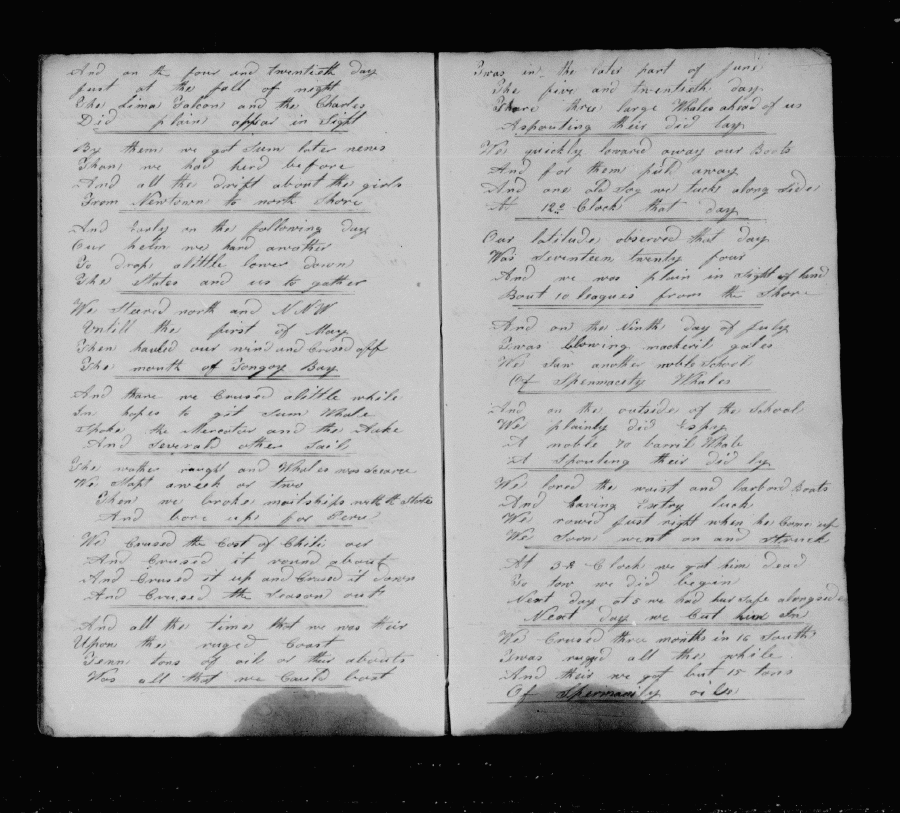 And on the four and twentieth day
Just at the fall of night
The Lima Falcon and the Charles
Did plain appar in Sight
By them we got Sum later news
Than we had herd before
And all the drift about the girls
From Newtown to north Shore
And Early on the following day
Our helm we hand another
To drop alittle lower down
The States and us to gather
We Steared north and N N W
Untill the first of May
Then hauled our wind and Crused off
The mouth of Tongoy Bay
And thare we Crused alittle while
In hopes to git Sum Whale
Spoke the Mercator and the Duke
And Severald other Sail
The wather rought and Whales was Scarce
We Stopt aweek or two
Then we broke mateships with the States
And bore up for Peru
We Crused the Cost of Chili
And Crused it round about
And Crused it up and Crused it down
And Crused the Season out
And all the time that we was their
Upon the ruged Coast
Tenn tons of oile or their abouts
Was all that we Could bost
Twas in the later part of June
The five and twentieth day
Thare three large Whales ahead of us
Aspouting their did lay
We quickly loward away our Boats
And for them puld away
And one old Sog we tuck along Side
At 12 o Clock that day
Our latitude observed that day
Was Seventeen twenty four
And we was plain in Sight of land
Bout 10 leagues from the Shore
And on the Ninth day of July
Twas blowing mackeril gales
We Saw another noble School
Of Spermacety Whales
And on the outside of the School
We plainly did Espy
A noble 70 barril Whale
A Spouting their did ly
We lored the waist and larbord Boats
And having Extry luck
We rowed Just right when he Come up
We Soon went on and Struck
At 3 Clock we got him dead
To tow we did begin
Next day at 5 we had him Safe alongside
Next day we Cut him In
We Crused three months in 16 South
Twas ruged all the while
And their we got but 15 tons
Of Spermacity oile